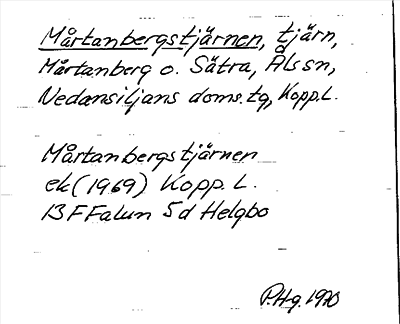 Mårtanbergstjärnen, tjärn,
Mårtanberg o. Sätra, Åls sn,
Nedansiljans doms.tg, Kopp.L.
Mårtanbergstjärnen
ek (1969) Kopp. L.
13 F Falun 5d Helgbo
P.Hg. 1970